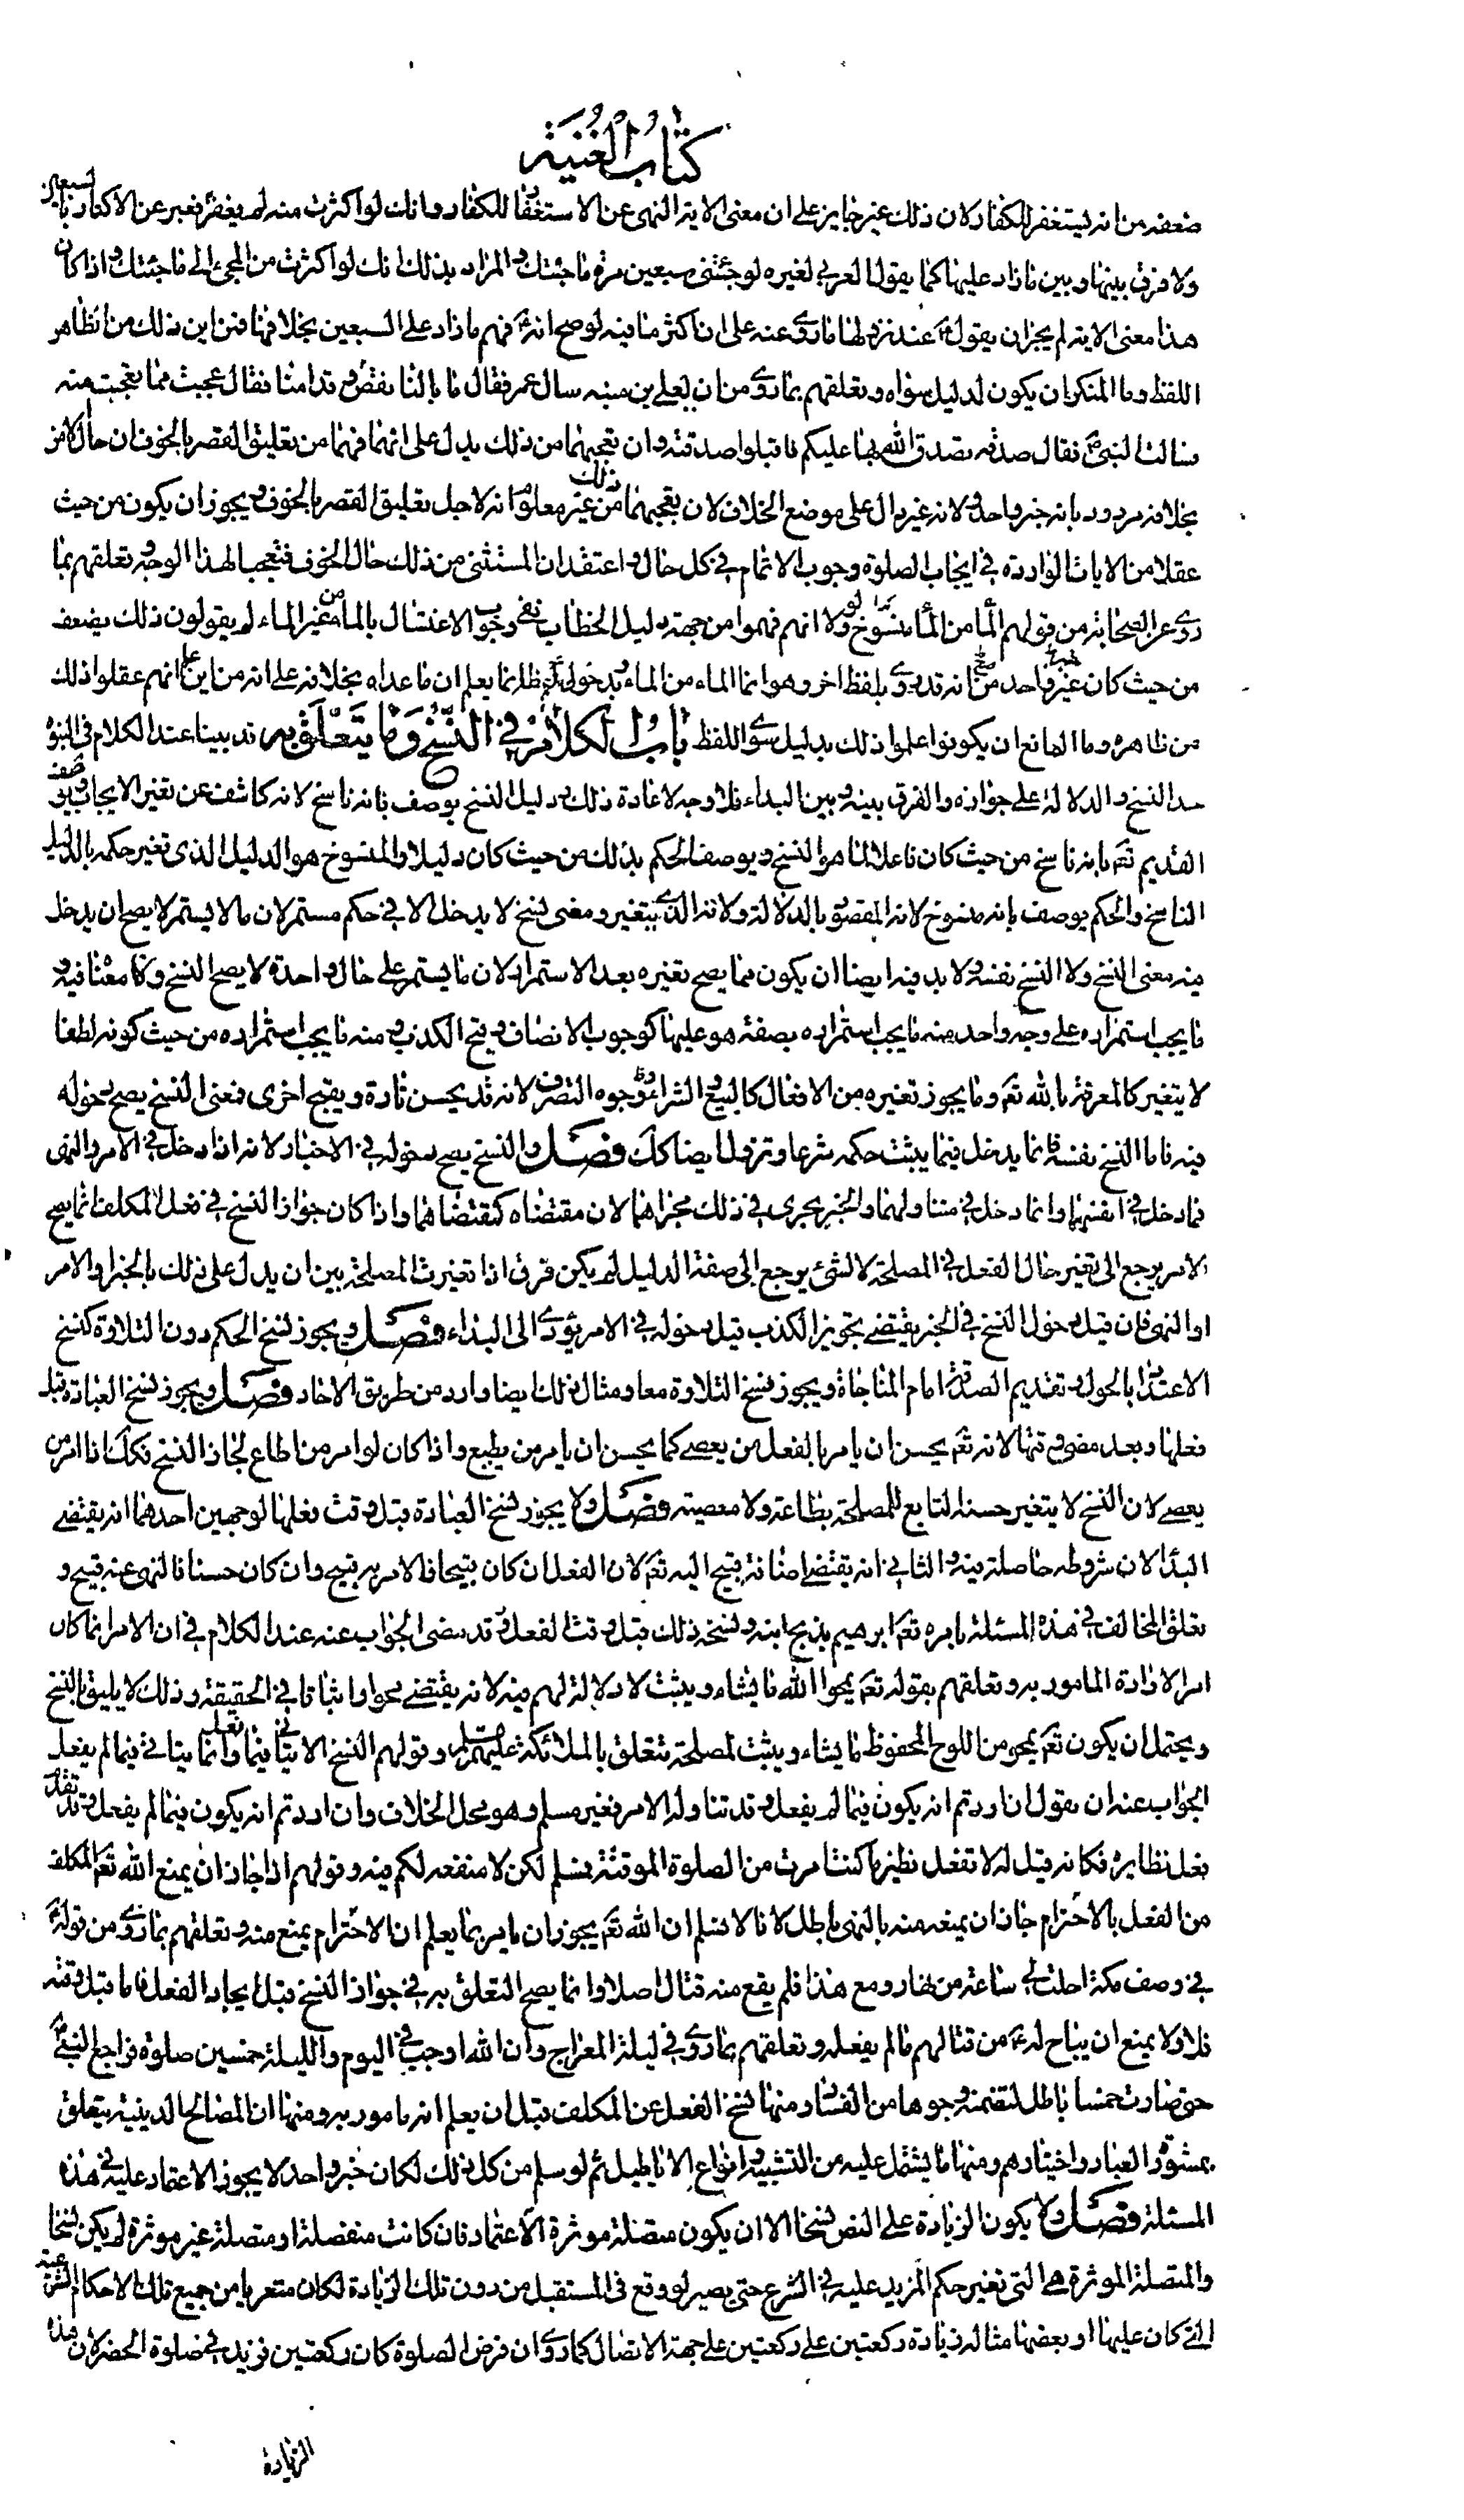 كتاب الغنية
ضعفه من انه يستغفر للكفار لان ذلك غير جايز على ان معنى الاية النهى عن الاستغفار للكفار وانك لو اكثرت منه لم يغفر فعبر عن الاكثار بالسبعين
ولا فرق بينها وبين ما زاد عليها كما يقول العربي لغيره لو جئتنى سبعين مرة ما جئتك والمراد بذلك انك لو اكثرت من المجئ الى ما جئتك واذا كان
هذا معنى الاية لم يجز ان يقول ع عند نزولها ما روى عنه على ان اكثر ما فيه لو صح انه ع فهم ما زاد على السبعين بخلافها فمن اين ذلك من ظاهر
اللفظ وما المنكر ان يكون لدليل سواه وتعلقهم بما روى من ان يعلى بن منبه سال عمر فقال ما بالنا نقصر وقد امنا فقال عجبت مما تعجبت منه
فسالت النبى ص فقال صدقة تصدق الله بها عليكم فاقبلوا صدقته وان تعجبهما من ذلك يدل على انهما فهما من تعليق القصر بالخوف ان حال الامن
بخلافه مردود بانه خبر واحد ولانه غير دال على موضع الخلاف لان تعجبهما من ذلك غير معلوم انه لاجل تعليق القصر بالخوف ويجوز ان يكون من حيث
عقلا من الايات الواردة في ايجاب الصلوة وجوب الاتمام في كل حال واعتقدا ان المستثنى من ذلك حال الخوف فتعجبا لهذا الوجه وتعلقهم بما
روى عن الصحابة من قولهم الما من الما منسوخ ولولا انهم فهموا من جهة دليل الخطاب نفى وجوب الاغتسال بالماء من غير الماء لم يقولون ذلك يضعف
من حيث كان خبر واحد من انه قد روى بلفظ اخر وهو انما الماء من الماء وبدخول لفظ انما يعلم ان ما عداه بخلافه على انه من اين علم انهم عقلوا ذلك
من ظاهره وما المانع ان يكونوا علموا ذلك بدليل سوى اللفظ باب الكلام في النسخ وما يتعلق به قد بينا عند الكلام فى النبوة
حد النسخ والدلالة على جوازه والفرق بينه وبين البداء فلا وجه لاعادة ذلك ودليل النسخ يوصف بانه ناسخ لانه كاشف عن تغير الايجاب ويوصف
القديم تعه بانه ناسخ من حيث كان فاعلا لما هو النسخ ويوصف الحكم بذلك من حيث كان دليلا والمنسوخ هو الدليل الذى تغير حكمه بالدليل
الناسخ والحكم يوصف بانه منسوخ لانه المقصود بالدلالة ولانه الذى يتغير ومعنى نسخ لا يدخل الا في حكم مستمر لان ما لا يستمر لا يصح ان يدخل
فيه معنى النسخ ولا النسخ نفسه ولا بد فيه ايضا ان يكون مما يصح تغيره بعد الاستمرار لان ما يستمر على حال واحدة لا يصح النسخ ولا معناه فيه و
ما يجب استمراره على وجه واحد منه ما يجب استمراره بصفة هو عليها كوجوب الانصاف وقبح الكذب ومنه ما يجب استمراره من حيث كونه لطفا
لا يتغير كالمعرفة بالله تعه وما يجوز تغيره من الافعال كالبيع والشراء ووجوه التصرف لانه قد يحسن تارة ويقبح اخرى فمعنى النسخ يصح دخوله
فيه فاما النسخ نفسه فانما يدخل فيما يثبت حكمه شرعا وتزول ايضا كك فصل والنسخ يصح دخوله في الاخبار لانه اذا دخل في الامر والنهى
فما دخل في انفسها وانما دخل في متناولهما والخبر يجرى في ذلك مجراهما لان مقتضاه كمقتضاهما واذا كان جواز النسخ في فعل المكلف انما يصح
لامر يرجع الى تغير حال الفعل في المصلحة لا لشئ يرجع الى صفة الدليل لم يكن فرق اذا تغيرت المصلحة بين ان يدل على ذلك بالخبر او الامر
او النهى فان قيل دخول النسخ في الخبر يقتضى تجويز الكذب قيل دخوله في الامر يؤدى الى البداء فصل ويجوز نسخ الحكم دون التلاوة كنسخ
الاعتداد بالحول وتقديم الصدقة امام المناجاة ويجوز نسخ التلاوة معا ومثال ذلك ايضا وارد من طريق الاحاد فصل ويجوز نسخ العبادة قبل
فعلها وبعد مضى وقتها لانه تعه يحسن ان يامر بالفعل من يعصى كما يحسن ان يامر من يطيع واذا كان لو امر من اطاع لجاز النسخ فكك اذا امر من
يعصى لان النسخ لا يتغير حسنه التابع للمصلحة بطاعة ولا معصية فصل ولا يجوز نسخ العبادة قبل وقت فعلها لوجهين احدهما انه يقتضى
البدا لان شروطه حاصلة فيه والثاني انه يقتضى اضافة قبيح اليه تعه لان الفعل ان كان قبيحا فالامر به قبيح وان كان حسنا فالنهى عنه قبيح و
تعلق المخالف في هذه المسئلة بامره تعه ابرهيم بذبح ابنه ونسخه ذلك قبل وقت الفعل قد مضى الجواب عنه عند الكلام في ان الامر انما كان
امرا لارادة المامور به وتعلقهم بقوله تعه يمحوا الله ما يشاء ويثبت لا دلالة لهم فيه لانه يقتضى محوا واثباتا في الحقيقة وذلك لا يليق بالنسخ
ويحتمل ان يكون تعه يمحو من اللوح المحفوظ ما يشاء ويثبت لمصلحة تتعلق بالملائكة عليهم السلم وقولهم النسخ لا يتاتى فيما فعله وانما يتاتى فيما لم يفعل
الجواب عنه ان يقول ان اردتم انه يكون فيما لم يفعل وقد تناوله الامر فغير مسلم وهو محل الخلاف وان اردتم انه يكون فيما لم يفعل وقد تقدم
فعل نظايره فكانه قيل له لا تفعل نظير ما كنت امرت من الصلوة الموقتة فمسلم لكن لا منفعة لكم فيه وقولهم اذا جاز ان يمنع الله تعه المكلف
من الفعل بالاخترام جاز ان يمنعه منه بالنهى باطل لانا لا نسلم ان الله تعه يجوز ان يامر بما يعلم ان الاخترام يمنع منه وتعلقهم بما روى من قوله ع
في وصف مكة احلت لى ساعة من نهار ومع هذا فلم يقع منه قتال اصلا وانما يصح التعلق به في جواز النسخ قبل ايجاد الفعل فاما قبل وقته
فلا ولا يمنع ان يباح له ع من قتالهم ما لم يفعله وتعلقهم بما روى في ليلة المعراج وان الله اوجب في اليوم والليلة خمسين صلوة فراجع النبى ع
حتى صارت خمسا باطل لتضمنه وجوها من الفساد منها نسخ الفعل عن المكلف قبل ان يعلم انه مامور به ومنها ان المصالح الدينية يتعلق
بمشورة العباد واختيارهم ومنها ما يشتمل عليه من التشبيه وانواع الاباطيل ثم لو سلم من كل ذلك لكان خبر واحد لا يجوز الاعتماد عليه في هذه
المسئلة فصل لا يكون الزيادة على النص نسخا الا ان يكون متصلة موثرة الاعتماد فان كانت منفصلة او متصلة غير موثرة لم يكن نسخا
والمتصلة الموثرة هى التى تغير حكم المزيد عليه في الشرع حتى يصير لو وقع فى المستقبل من دون تلك الزيادة لكان متعريا من جميع تلك الاحكام الشرعية
التى كان عليها او بعضها مثاله زيادة ركعتين على ركعتين على جهة الاتصال كما روى ان فرض الصلوة كان ركعتين فزيد في صلوة الحضر لان هذه
الزيادة